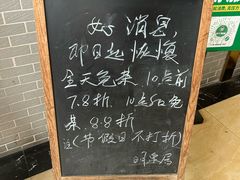 好消息,
即日起恢复
全天免茶 10点前
7.8折, 10点后免
茶 8.8折
注(节假日不打折)